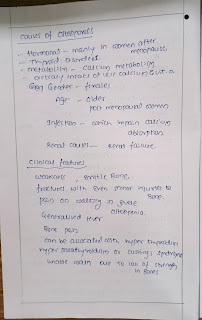 Causes of Osteoporosis
- Hormonal - mainly in women after menopause
- Thyroid disorders
- metabolism - calcium metabolism
- dietary intake of less calcium
Gender - females
Age - older
post menopausal women
Infection - which impair calcium
absorption
Renal causes - Renal failure.
Clinical features
weakness - Brittle Bone.
fractures with even minor injuries to
Bone.
pain on walking in
osteopenia.
Generalised
Bone pain
can be associated with hyper thyroidism
hyper parathyroidism or cushings syndrome
unable walk due to loss of strength
in Bones